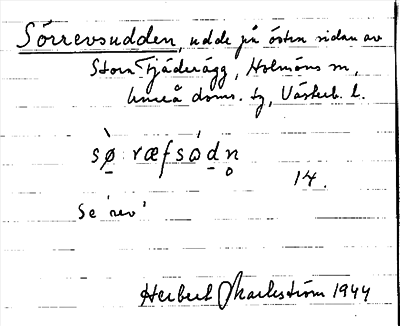 Sörrevsudden, udde på östra sidan av
Stora Fjäderägg, Holmöns sn,
Umeå doms. tg, Västerb. l.
sø̀ræfsódn̥
14.
Se 'rev'
Herbert Markström 1944